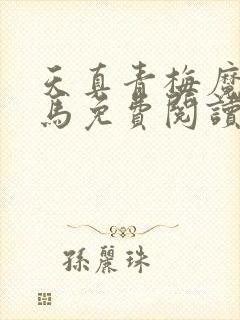 天真青梅魔
馬免費閱讀
孫麗珠